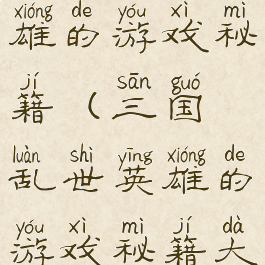 xióng de yóu xì mì
雄的游戏秘
jí sān guó
籍（三国
luàn shì yīng xióng de
乱世英雄的
yóu xì mì jí dà
游戏秘籍大